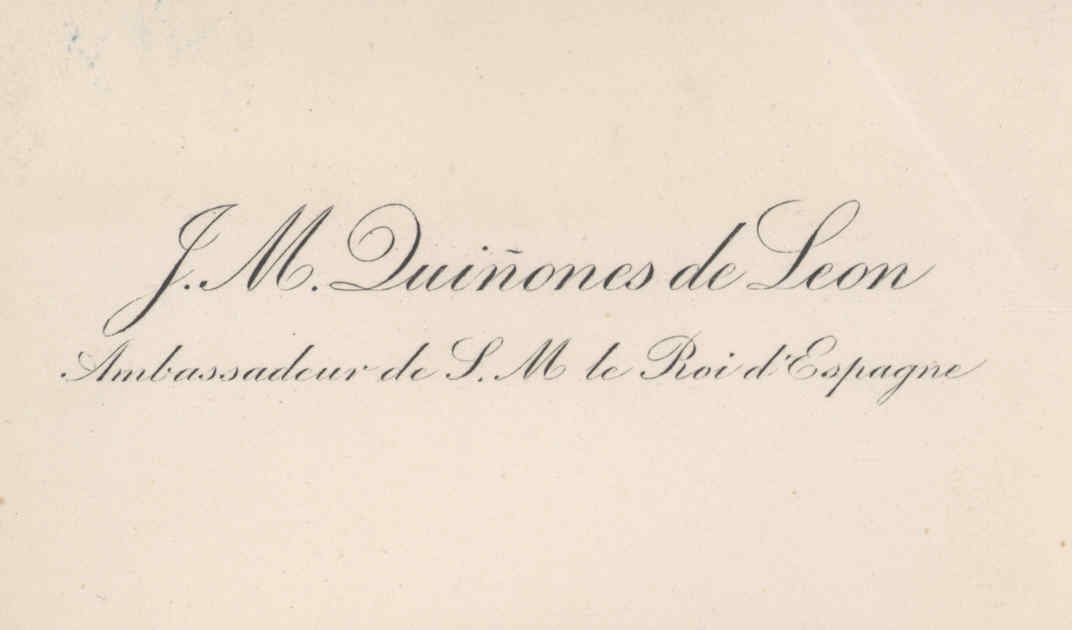 J. M. Quiñones de Leon
Ambassadeur de S. M le Roi d'Espagne